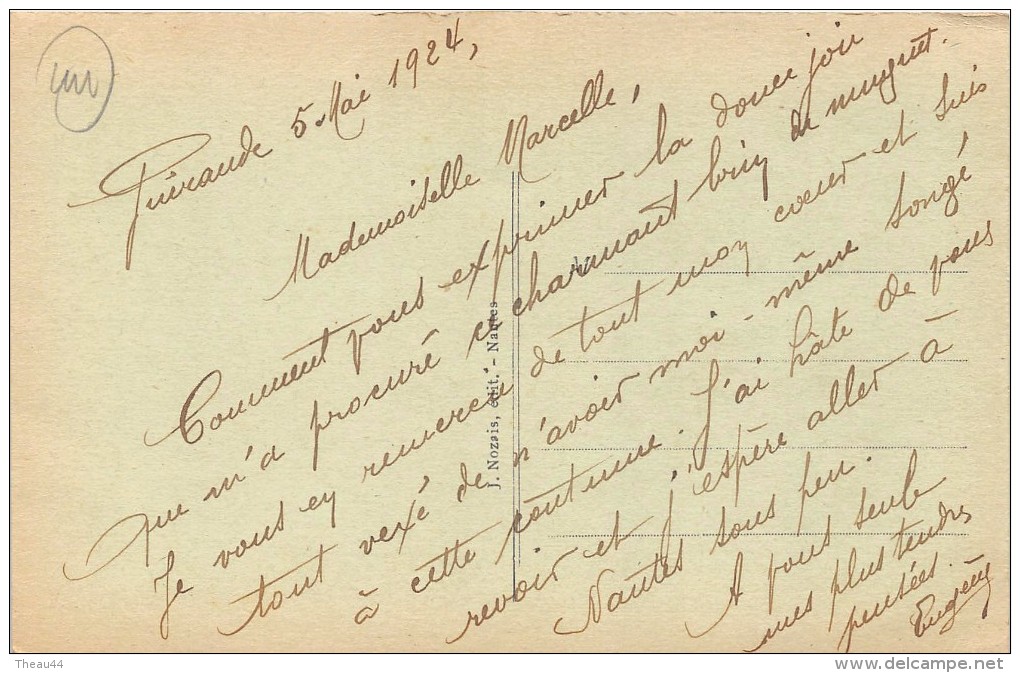 Guérande 5 Mai 1924,
Mademoiselle Marcelle,
Comment vous exprimer la douce joie
que m'a procuré ce charmant brin de muguet.
Je vous en remercie de tout mon coeur et suis
tout vexé de n'avoir moi-même songé
à cette coutume. J'ai hâte de vous
revoir et j'espère aller à
Nantes sous peu.
A vous seule
mes plus tendres
pensées.
Eugène
J. Nozais, édit. - Nantes
Theau44
delcampe.net